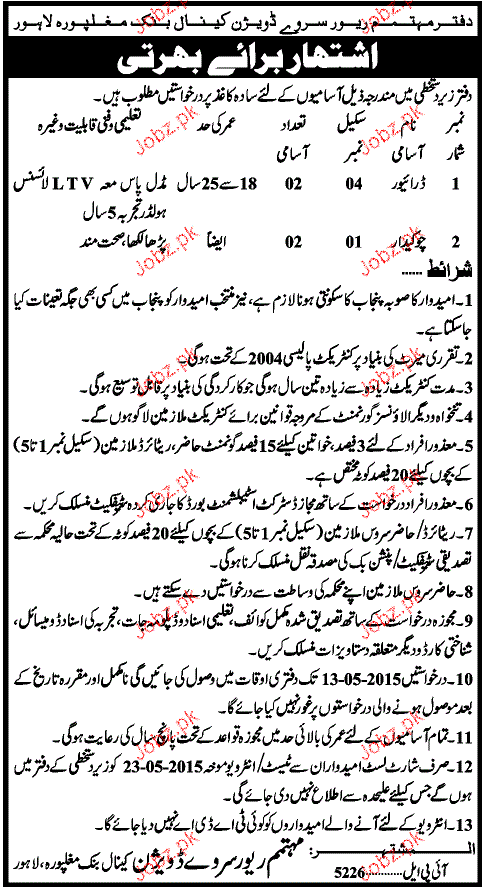 دفتر مہتمم ریور سروے ڈویژن کینال بنک مغلپورہ لاہور
اشتہار برائے بھرتی
دفتر زیر دستخطی میں مندرجہ ذیل آسامیوں کے لئے سادہ کاغذ پر درخواستیں مطلوب ہیں۔
نمبر نام سکیل تعداد عمر کی حد تعلیمی و فنی قابلیت وغیرہ
شمار آسامی نمبر آسامی
1 ڈرائیور 04 02 18 سے 25 سال مڈل پاس معہ LTV لائسنس
ہولڈر تجربہ 5 سال
2 چوکیدار 01 02 ایضاً پڑھا لکھا، صحت مند
شرائط ......
1۔ امیدوار کا صوبہ پنجاب کا سکونتی ہونا لازم ہے، نیز منتخب امیدوار کو پنجاب میں کسی بھی جگہ تعینات کیا
جاسکتا ہے۔
2۔ تقرری میرٹ کی بنیاد پر کنٹریکٹ پالیسی 2004 کے تحت ہوگی۔
3۔ مدت کنٹریکٹ زیادہ سے زیادہ تین سال ہوگی جو کارکردگی کی بنیاد پر قابل توسیع ہوگی۔
4۔ تنخواہ و دیگر الاؤنسز گورنمنٹ کے مروجہ قوانین برائے کنٹریکٹ ملازمین لاگو ہوں گے۔
5۔ معذور افراد کے لئے 3 فیصد، خواتین کیلئے 15 فیصد گورنمنٹ حاضر، ریٹائرڈ ملازمین (سکیل نمبر 1 تا 5)
کے بچوں کیلئے 20 فیصد کوٹہ مختص ہے۔
6۔ معذور افراد درخواست کے ساتھ مجاز ڈسٹرکٹ اسٹیبلشمنٹ بورڈ کا جاری کردہ سرٹیفکیٹ منسلک کریں۔
7۔ ریٹائرڈ/ حاضر سروس ملازمین (سکیل نمبر 1 تا 5) کے بچوں کیلئے 20 فیصد کوٹہ کے تحت حالیہ محکمہ سے
تصدیقی سرٹیفکیٹ/ پنشن بک کی مصدقہ نقل منسلک کرنا ہوگی۔
8۔ حاضر سروس ملازمین اپنے محکمہ کی وساطت سے درخواستیں دے سکتے ہیں۔
9۔ مجوزہ درخواست کے ساتھ تصدیق شدہ مکمل کوائف، تعلیمی اسناد و ڈپلومہ جات، تجربہ کی اسناد و ڈومیسائل،
شناختی کارڈ و دیگر متعلقہ دستاویزات منسلک کریں۔
10۔ درخواستیں 13-05-2015 تک دفتری اوقات میں وصول کی جائیں گی نامکمل اور مقررہ تاریخ کے
بعد موصول ہونے والی درخواستوں پر غور نہیں کیا جائے گا۔
11۔ تمام آسامیوں کے لئے عمر کی بالائی حد میں مجوزہ قواعد کے تحت پانچ سال کی رعایت ہوگی۔
12۔ صرف شارٹ لسٹ امیدواران سے ٹیسٹ/ انٹرویو مورخہ 23-05-2015 کو زیر دستخطی کے دفتر میں
ہوں گے جس کیلئے علیحدہ سے اطلاع نہیں دی جائے گی۔
13۔ انٹرویو کے لئے آنے والے امیدواروں کو کوئی ٹی اے ڈی اے نہیں دیا جائے گا۔
المشتہر:
مہتمم ریور سروے ڈویژن کینال بنک مغلپورہ، لاہور
آئی پی ایل..........5226
Jobz.pk